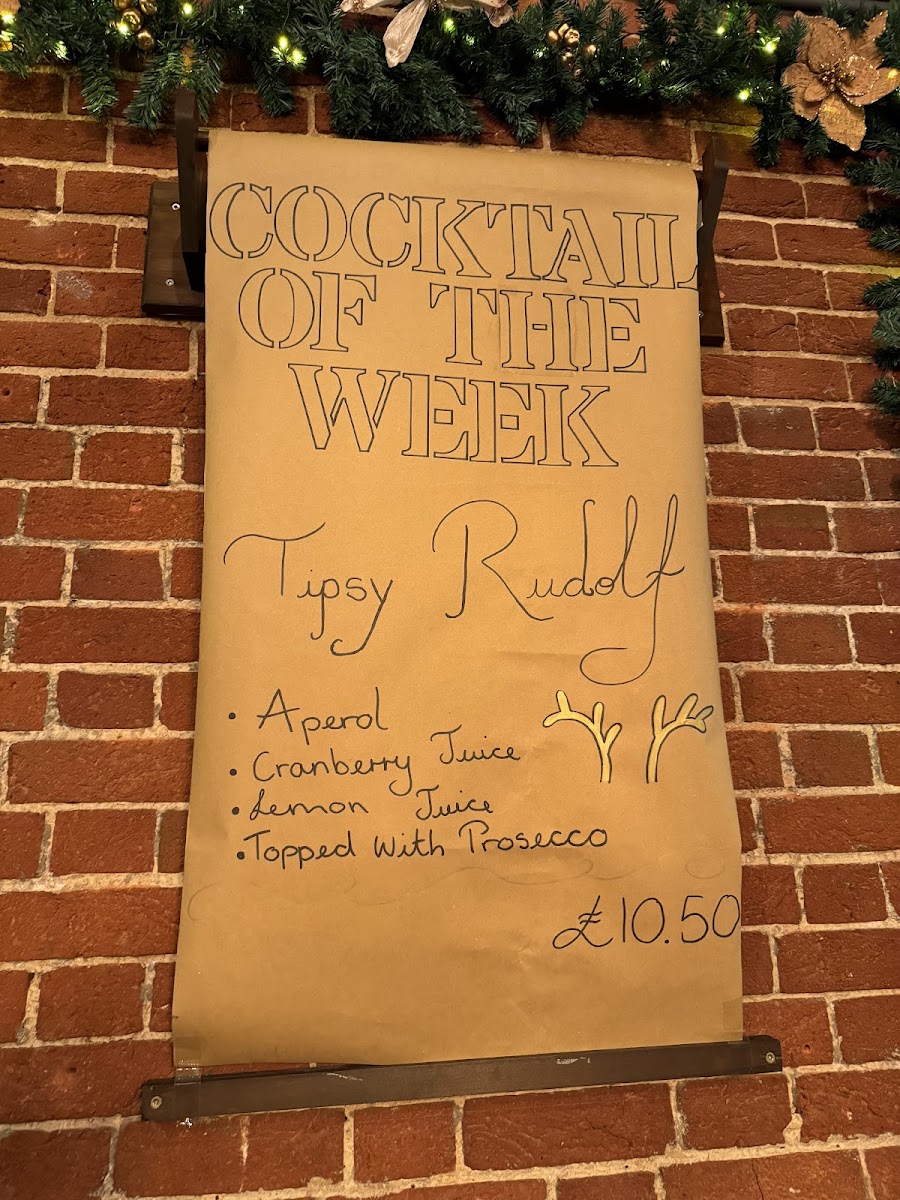 COCKTAIL
OF THE
WEEK
Tipsy Rudolf
• Aperol
• Cranberry Juice
• Lemon Juice
• Topped With Prosecco
£10.50